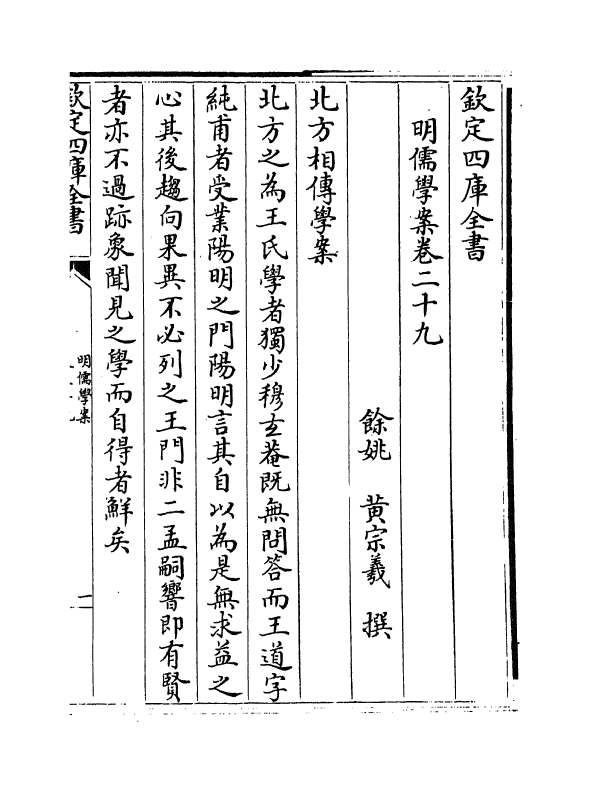 欽定四庫全書
明儒學案卷二十九
餘姚 黃宗羲 撰
北方相傳學案
北方之為王氏學者獨少穆玄菴既無問答而王道字
純甫者受業陽明之門陽明言其自以為是無求益之
心其後趨向果異不必列之王門非二孟嗣響即有賢
者亦不過跡象聞見之學而自得者鮮矣
欽定四庫全書
明儒學案
一